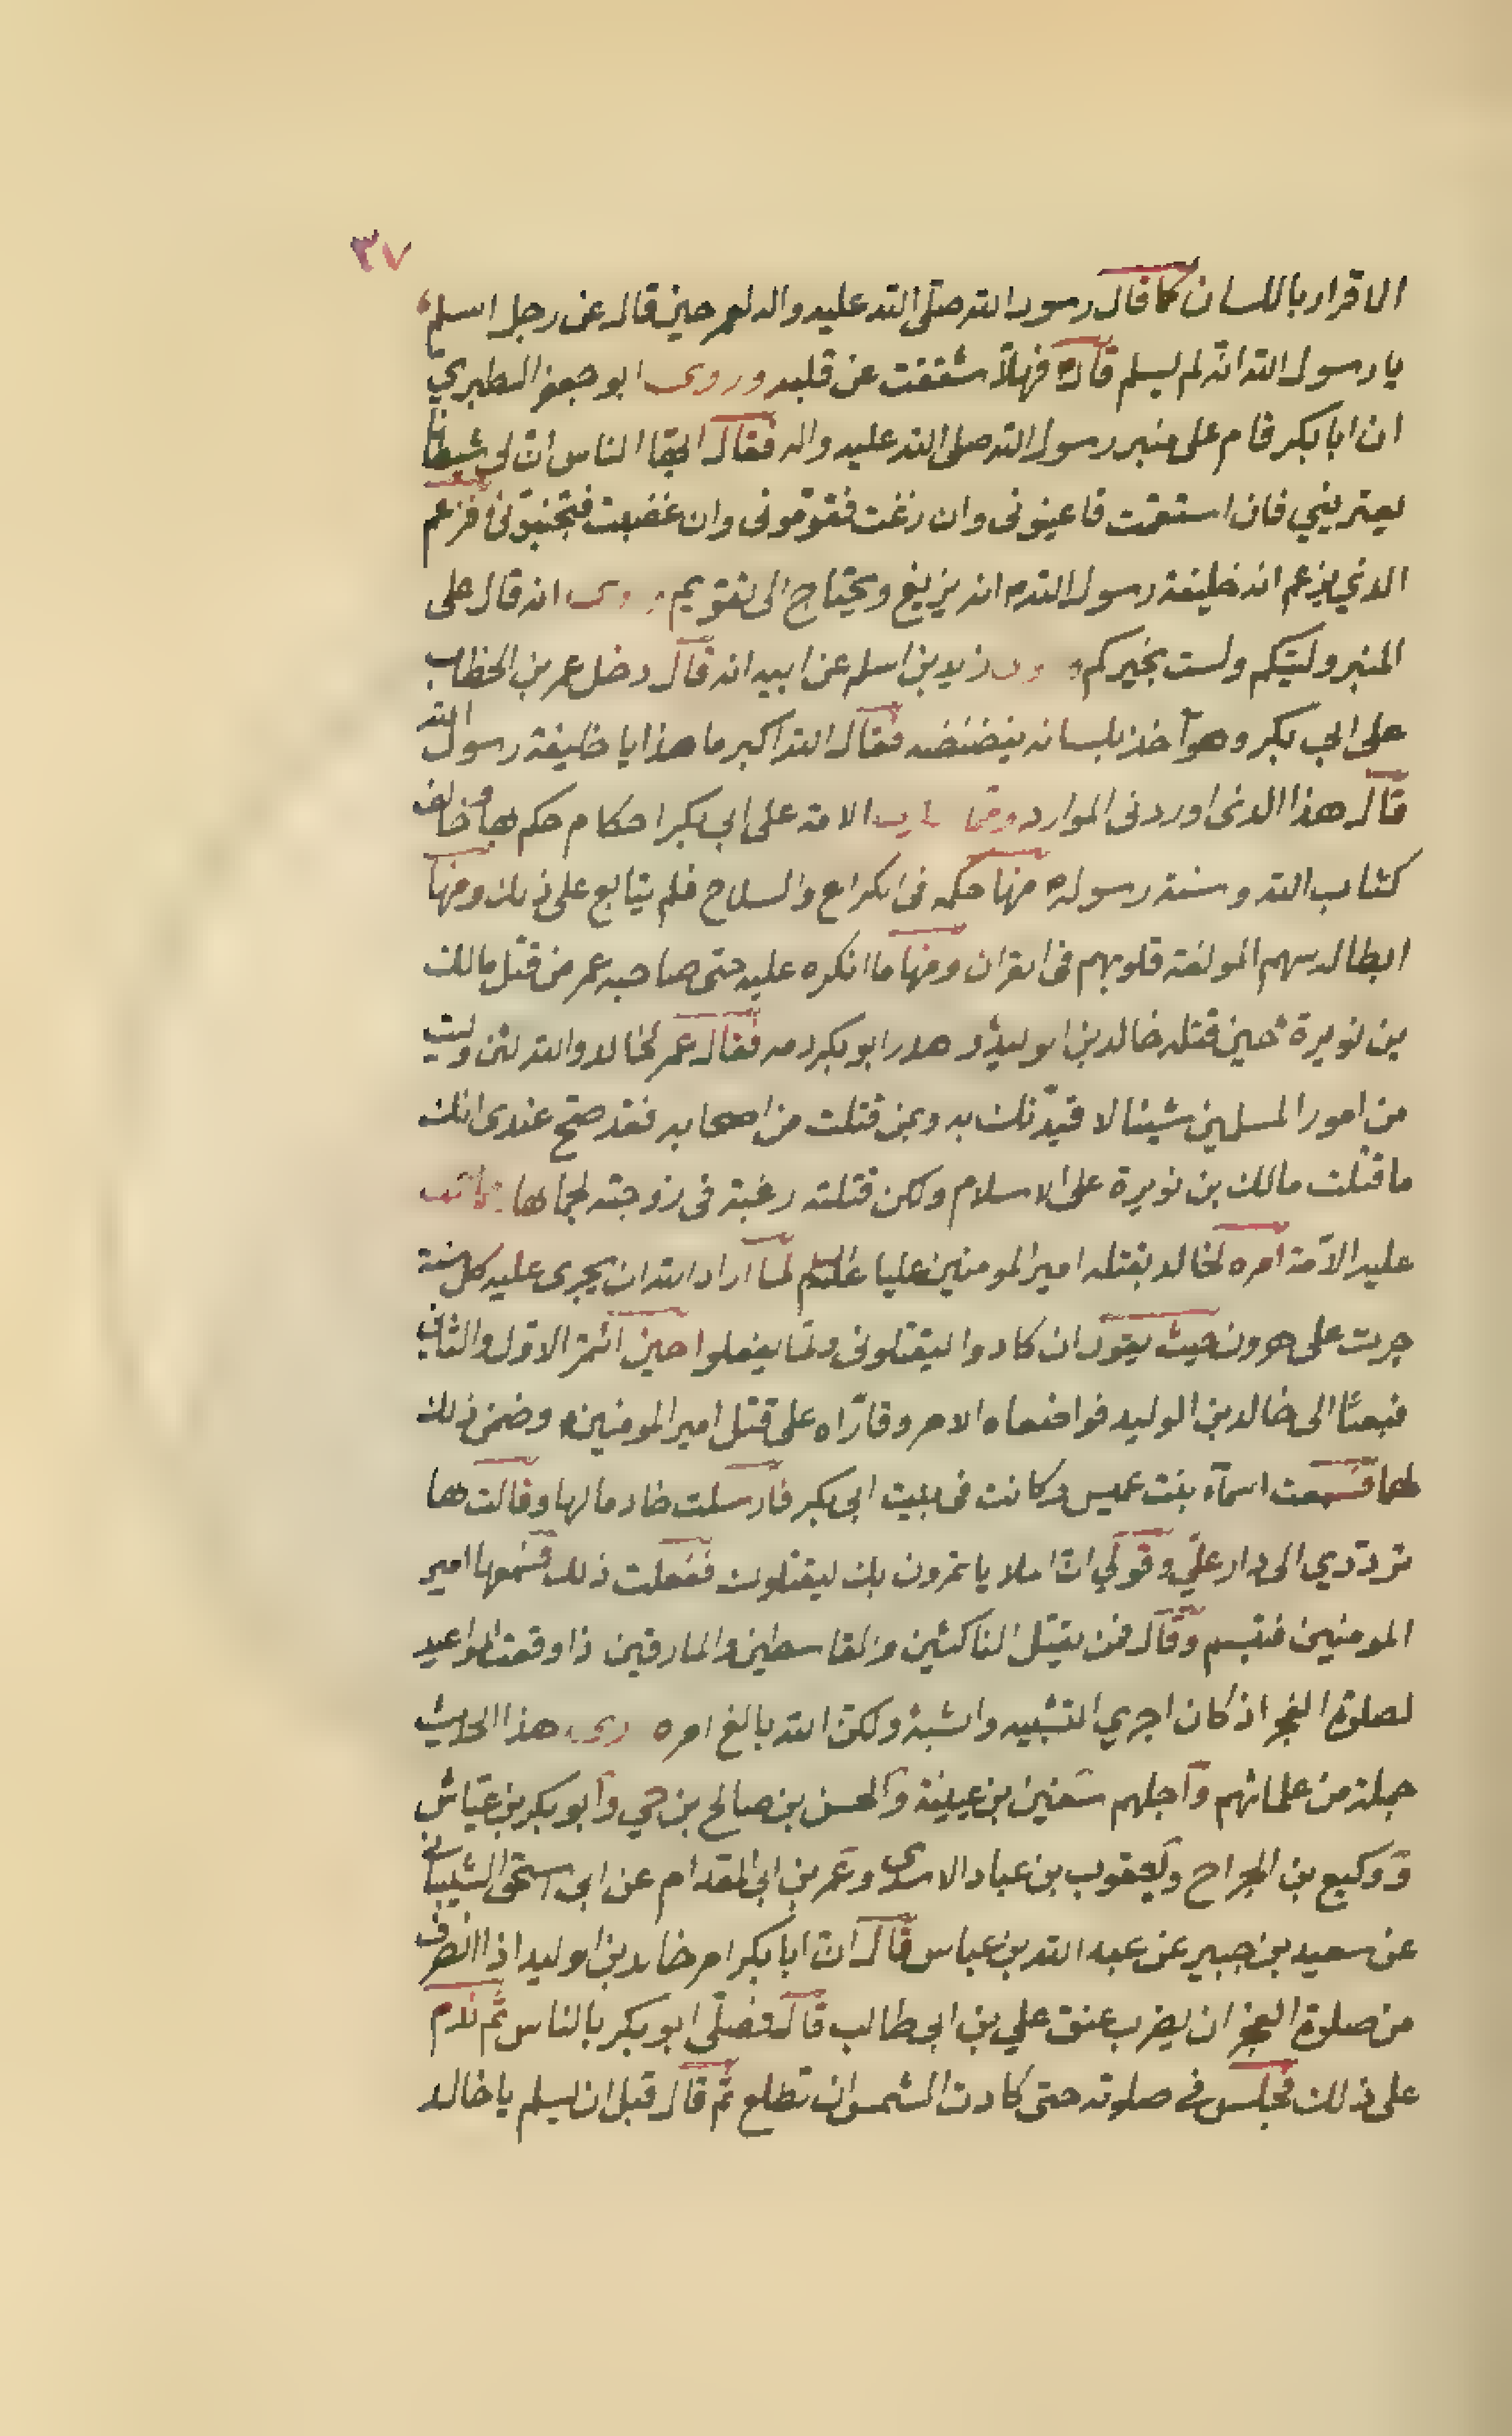 ٣٧
الاقرار باللسان كما قال رسول الله صلى الله عليه واله لهم حين قال عن رجل اسلم
يا رسول الله انه لم يسلم قال ه فهلا شققت عن قلبه وروى ابو جعفر الطبري
ان ابا بكر قام على منبر رسول الله صلى الله عليه واله فقال ايها الناس ان لي شيطانا
يعتريني فان استقمت فاعينونى وان زغت فقومونى وان غضبت فتجنبونى فزعم
الذي يزعم انه خليفة رسول الله م انه يزيغ ويحتاج الى تقويم وروى انه قال على
المنبر وليتكم ولست بخيركم وروى زيد بن اسلم عن ابيه انه قال دخل عمر بن الخطاب
على ابي بكر وهو آخذ بلسانه ينضنضه فقال الله اكبر ما هذا يا خليفة رسول الله
قال هذا الذى اوردنى الموارد ومما الامة على ابي بكر احكام حكم بها وخالف
كتاب الله وسنة رسوله ه منها حكمه فى الكراع والسلاح فلم يتابع على ذلك ومنها
ابطاله سهم المولفة قلوبهم فى القران ومنها ما انكره عليه حتى صاحبه عمر من قتل مالك
بن نويرة حين قتله خالد بن الوليد وهدر ابو بكر دمه فقال عمر لخالد والله لئن وليت
من امور المسلمين شيئا لاقيدنك به وبمن قتلت من اصحابه فقد صح عندى انك
ما قتلت مالك بن نويرة على الاسلام ولكن قتلته رغبة فى زوجته لجمالها
عليه الامة امره لخالد بقتله امير المومنين عليا عليلم لما اراد الله ان يجرى عليه كل سنة
جرت على هرون حيث يقول ان كادوا ليقتلونى ولما يفعلوا حين ائتمر الاول والثانى
فبعثا الى خالد بن الوليد فواضعاه الامر وقارّاه على قتل امير المومنين وضمن ذلك
لهما فسمعت اسماء بنت عميس وكانت فى بيت ابي بكر فارسلت خادما لها وقالت لها
ترددي الى دار علي وقولي ان الملا ياتمرون بك ليقتلوك ففعلت ذلك فسمعها امير
المومنين فتبسم وقال فمن يقتل الناكثين والقاسطين والمارقين ذا وقعت المواعيد
لصلوة الفجر اذ كان اجري التشبيه والشبه ولكن الله بالغ امره روى هذا الحديث
جملة من علمائهم وآجلهم سفين بن عيينة والحسن بن صالح بن حي وابو بكر بن عياش
ووكيع بن الجراح ويعقوب بن عباد الاسدى وعمر بن ابي المقدام عن ابي اسحق الشيبانى
عن سعيد بن جبير عن عبد الله بن عباس قال ان ابا بكر امر خالد بن الوليد اذا انصرف
من صلوة الفجر ان يضرب عنق علي بن ابي طالب قال فصلى ابو بكر بالناس ثم ندم
على ذلك فجلس في صلوته حتى كادت الشمس ان تطلع ثم قال قبل ان يسلم يا خالد